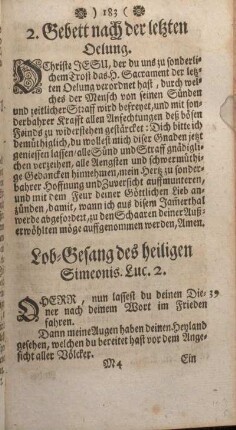 ) 183 (
2. Gebett nach der letzten
Oelung.
O Christe JESU, der du uns zu sonderli-
chem Trost das H. Sacrament der letz-
ten Oelung verordnet hast, durch wel-
ches der Mensch von seinen Sünden
und zeitlicher Straff wird befreyet, und mit son-
derbahrer Krafft allen Anfechtungen deß bösen
Feinds zu widerstehen gestärcket: Dich bitte ich
demüthiglich, du wollest mich diser Gnaden jetzt
geniessen lassen, alle Sünd und Straff gnädigli-
chen verzeihen, alle Aengsten und schwermüthi-
ge Gedancken hinnehmen, mein Hertz zu sonder-
bahrer Hoffnung und Zuversicht auffmunteren,
und mit dem Feur deiner Göttlichen Lieb an-
zünden, damit, wann ich aus disem Jamerthal
werde abgefordert, zu den Schaaren deiner Auß-
erwöhlten möge auffgenommen werden, Amen.
Lob-Gesang des heiligen
Simeonis. Luc. 2.
O HERR, nun lassest du deinen Die- 39
ner nach deinem Wort im Frieden
fahren.
Dann meine Augen haben deinen Heyland
gesehen, welchen du bereitet hast vor dem Ange-
sicht aller Völcker.
M 4 Ein